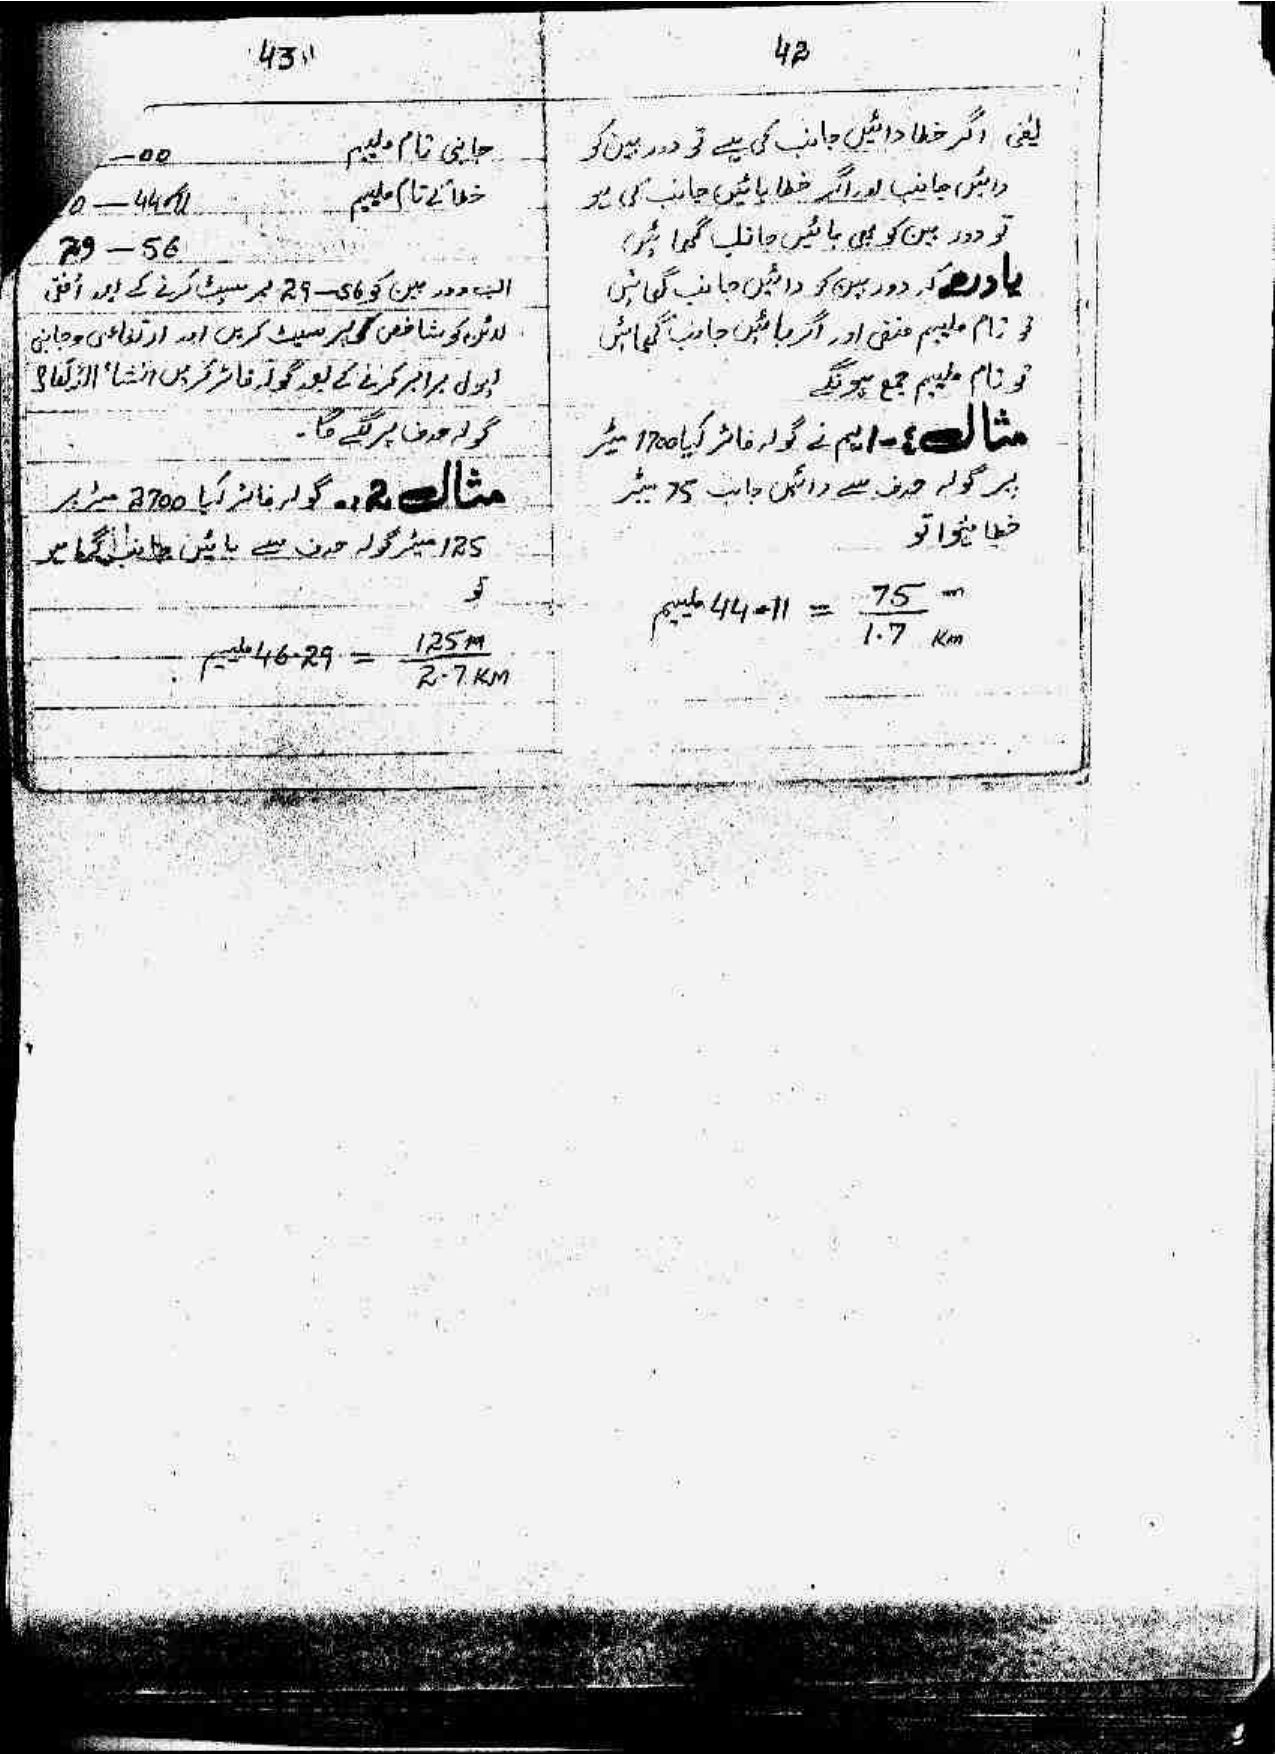 42
یعنی اگر خطا دائیں جانب کی ہے تو دور بین کو
دائیں جانب اور اگر خطا بائیں جانب کی ہو
تو دور بین کو بھی بائیں جانب گھمائیں
یاد رھے کہ دور بین کو دائیں جانب گھمائیں
تو تام ملیم منفی اور اگر بائیں جانب گھمائیں
تو تام ملیم جمع ہونگے
مثال 1 ہم نے گولہ فائر کیا 1700 میٹر
پر گولہ ھدف سے دائیں جانب 75 میٹر
خطا ہوا تو
75 m / 1.7 Km = 44.11 ملیم
43
جانبی تام ملیم —00
خطا کے تام ملیم 0—44
29—56
اب دور بین کو 56—29 پر سیٹ کرنے کے بعد اُفقی
لائن کو شاخص پر سیٹ کریں اور ارتفاعی و جانبی
لیول برابر کرنے کے بعد گولہ فائر کریں انشاء اللہ
گولہ ھدف پر لگے گا۔
مثال 2 گولہ فائر کیا 2700 میٹر پر
125 میٹر گولہ ھدف سے بائیں جانب گیا ہو
تو
125 m / 2.7 KM = 46.29 ملیم